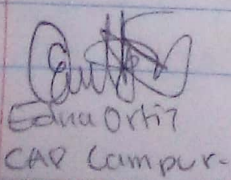 Edna Ortiz
CAP Campur.